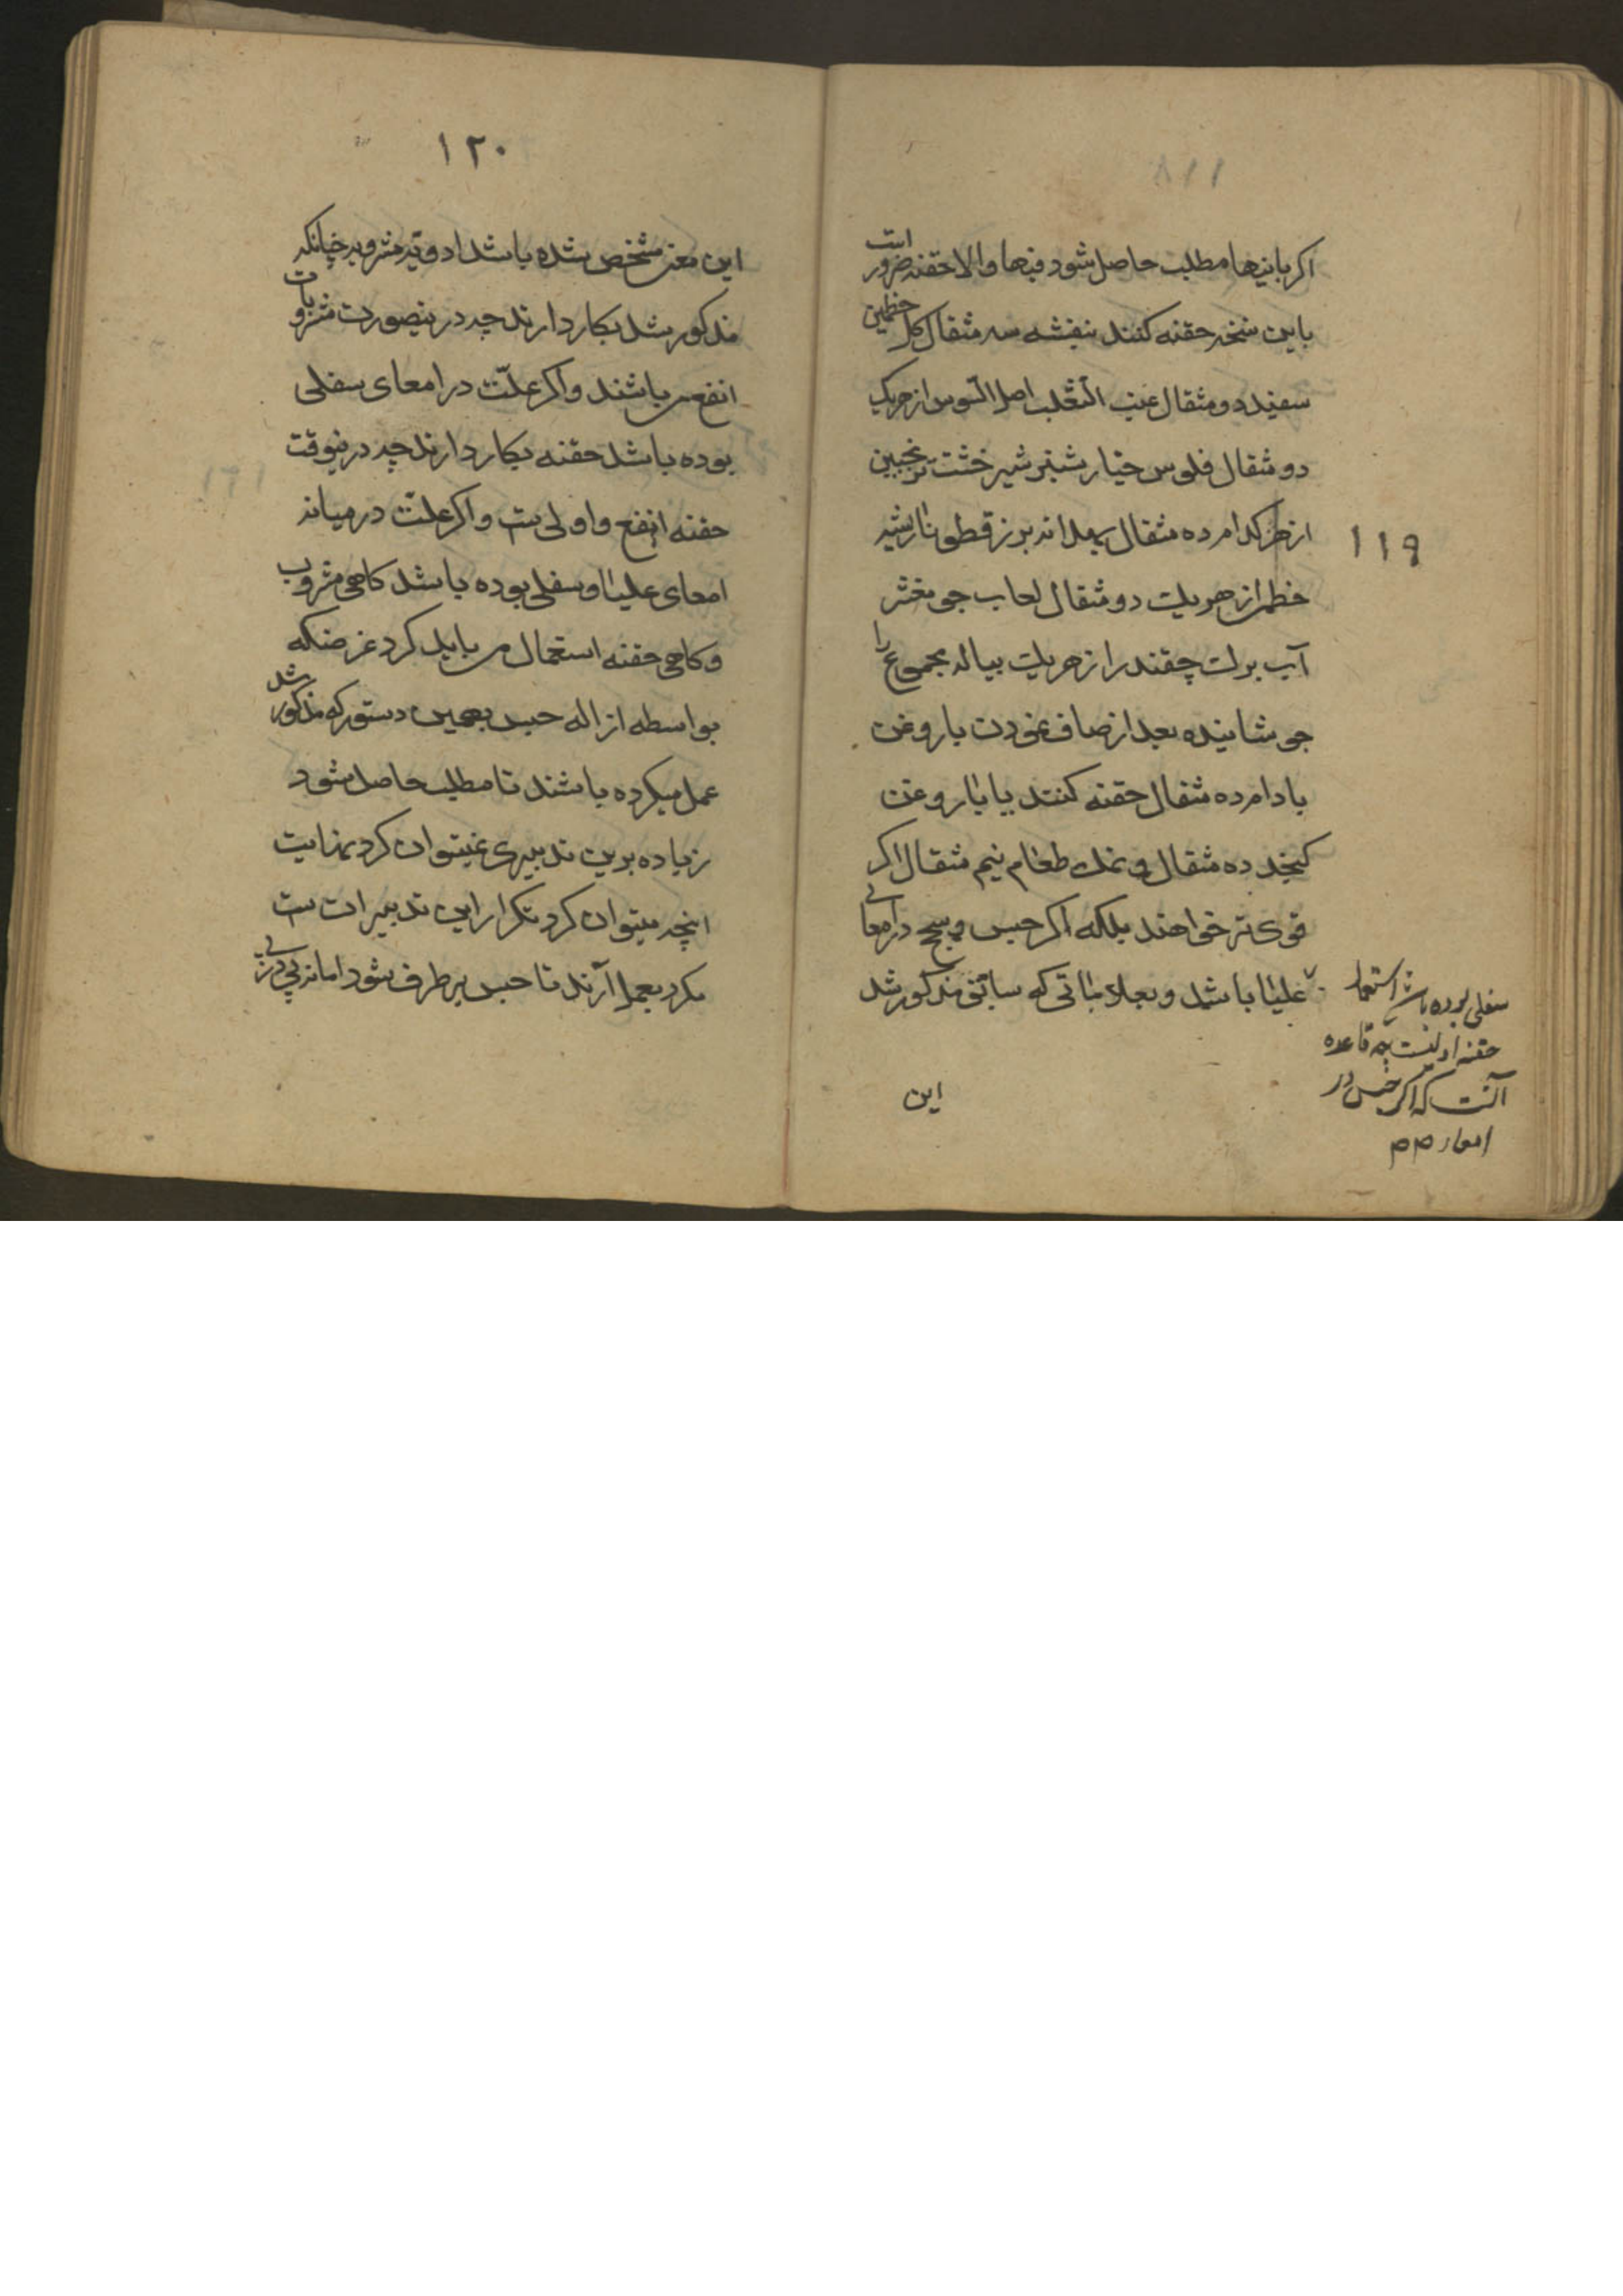 ۱۱۹
اکر باینها مطلب حاصل شود فبها والا حقنه ضرور است
باین نسخه حقنه کنند بنفشه سه مثقال کل خطمی
سفید دو مثقال عنب الثعلب اصل السوس از هریک
دو مثقال فلوس خیار شنبر شیر خشت ترنجبین
از هر کدام ده مثقال بهدانه بزرقطونا ریشه
خطمی از هریک دو مثقال لعاب جو مقشر
آب برک چقندر از هریک پیاله مجموع را
جوشانیده بعد از صاف نمودن با روغن
بادام ده مثقال حقنه کنند یا با روغن
کنجد ده مثقال و نمک طعام نیم مثقال اکر
قوی تر خواهند بلکه اکر حبس و سحج در امعای
علیا باشد و بعلاماتی که سابق مذکور شد
سفلی بوده باشد استعمال
حقنه اولیست چه قاعده
آنست که اکر حبس در
امعاء
این
۱۲۰
این معنی مشخص شده باشد ادویه مشروبه چنانکه
مذکور شد بکار دارند چه در ینصورت مشروبات
انفع می باشند و اکر علّت در امعای سفلی
بوده باشد حقنه بکار دارند چه در ینوقت
حقنه انفع و اولی ست و اکر علّت در میانه
امعای علیا و سفلی بوده باشد کاهی مشروب
و کاهی حقنه استعمال می باید کرد غرضکه
بواسطه ازاله حبس بهمین دستور که مذکور شد
عمل میکرده باشند تا مطلب حاصل شود
زیاده برین تدبیری نمیتوان کرد نهایت
انچه میتوان کرد تکرار این تدبیرات ست
مکرر بعمل آرند تا حبس بر طرف شود اما نه پی در پی